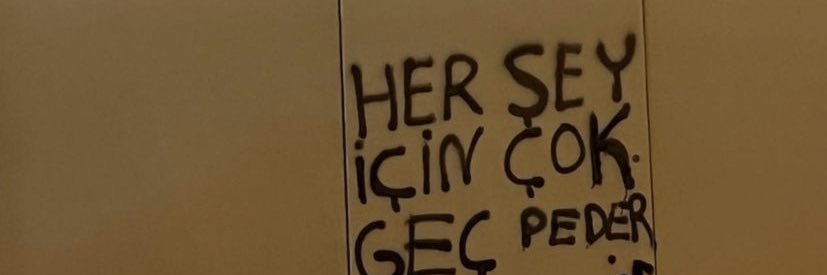 HER ŞEY
İÇİN ÇOK
GEÇ PEDER